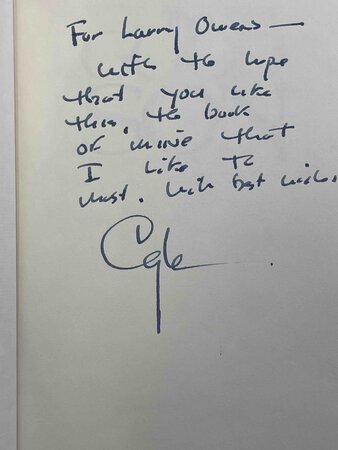 For Larry Owens —
with the hope
that you like
this, the book
of mine that
I like the
most. With best wishes,